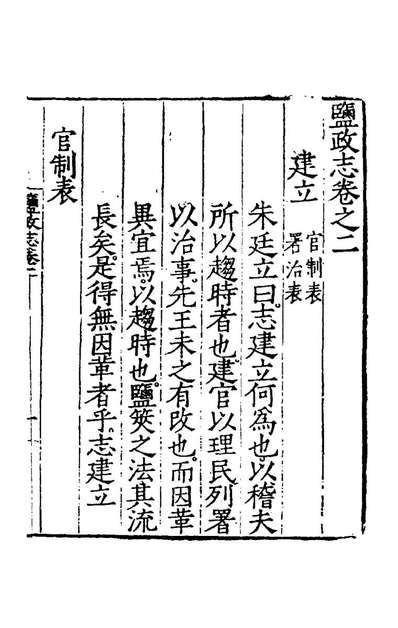 鹽政志卷之二
建立 官制表 署治表
朱廷立曰志建立何爲也以稽夫
所以趨時者也建官以理民列署
以治事先王未之有改也而因革
異宜焉以趨時也鹽筴之法其流
長矣是得無因革者乎志建立
官制表
鹽政志卷二
一